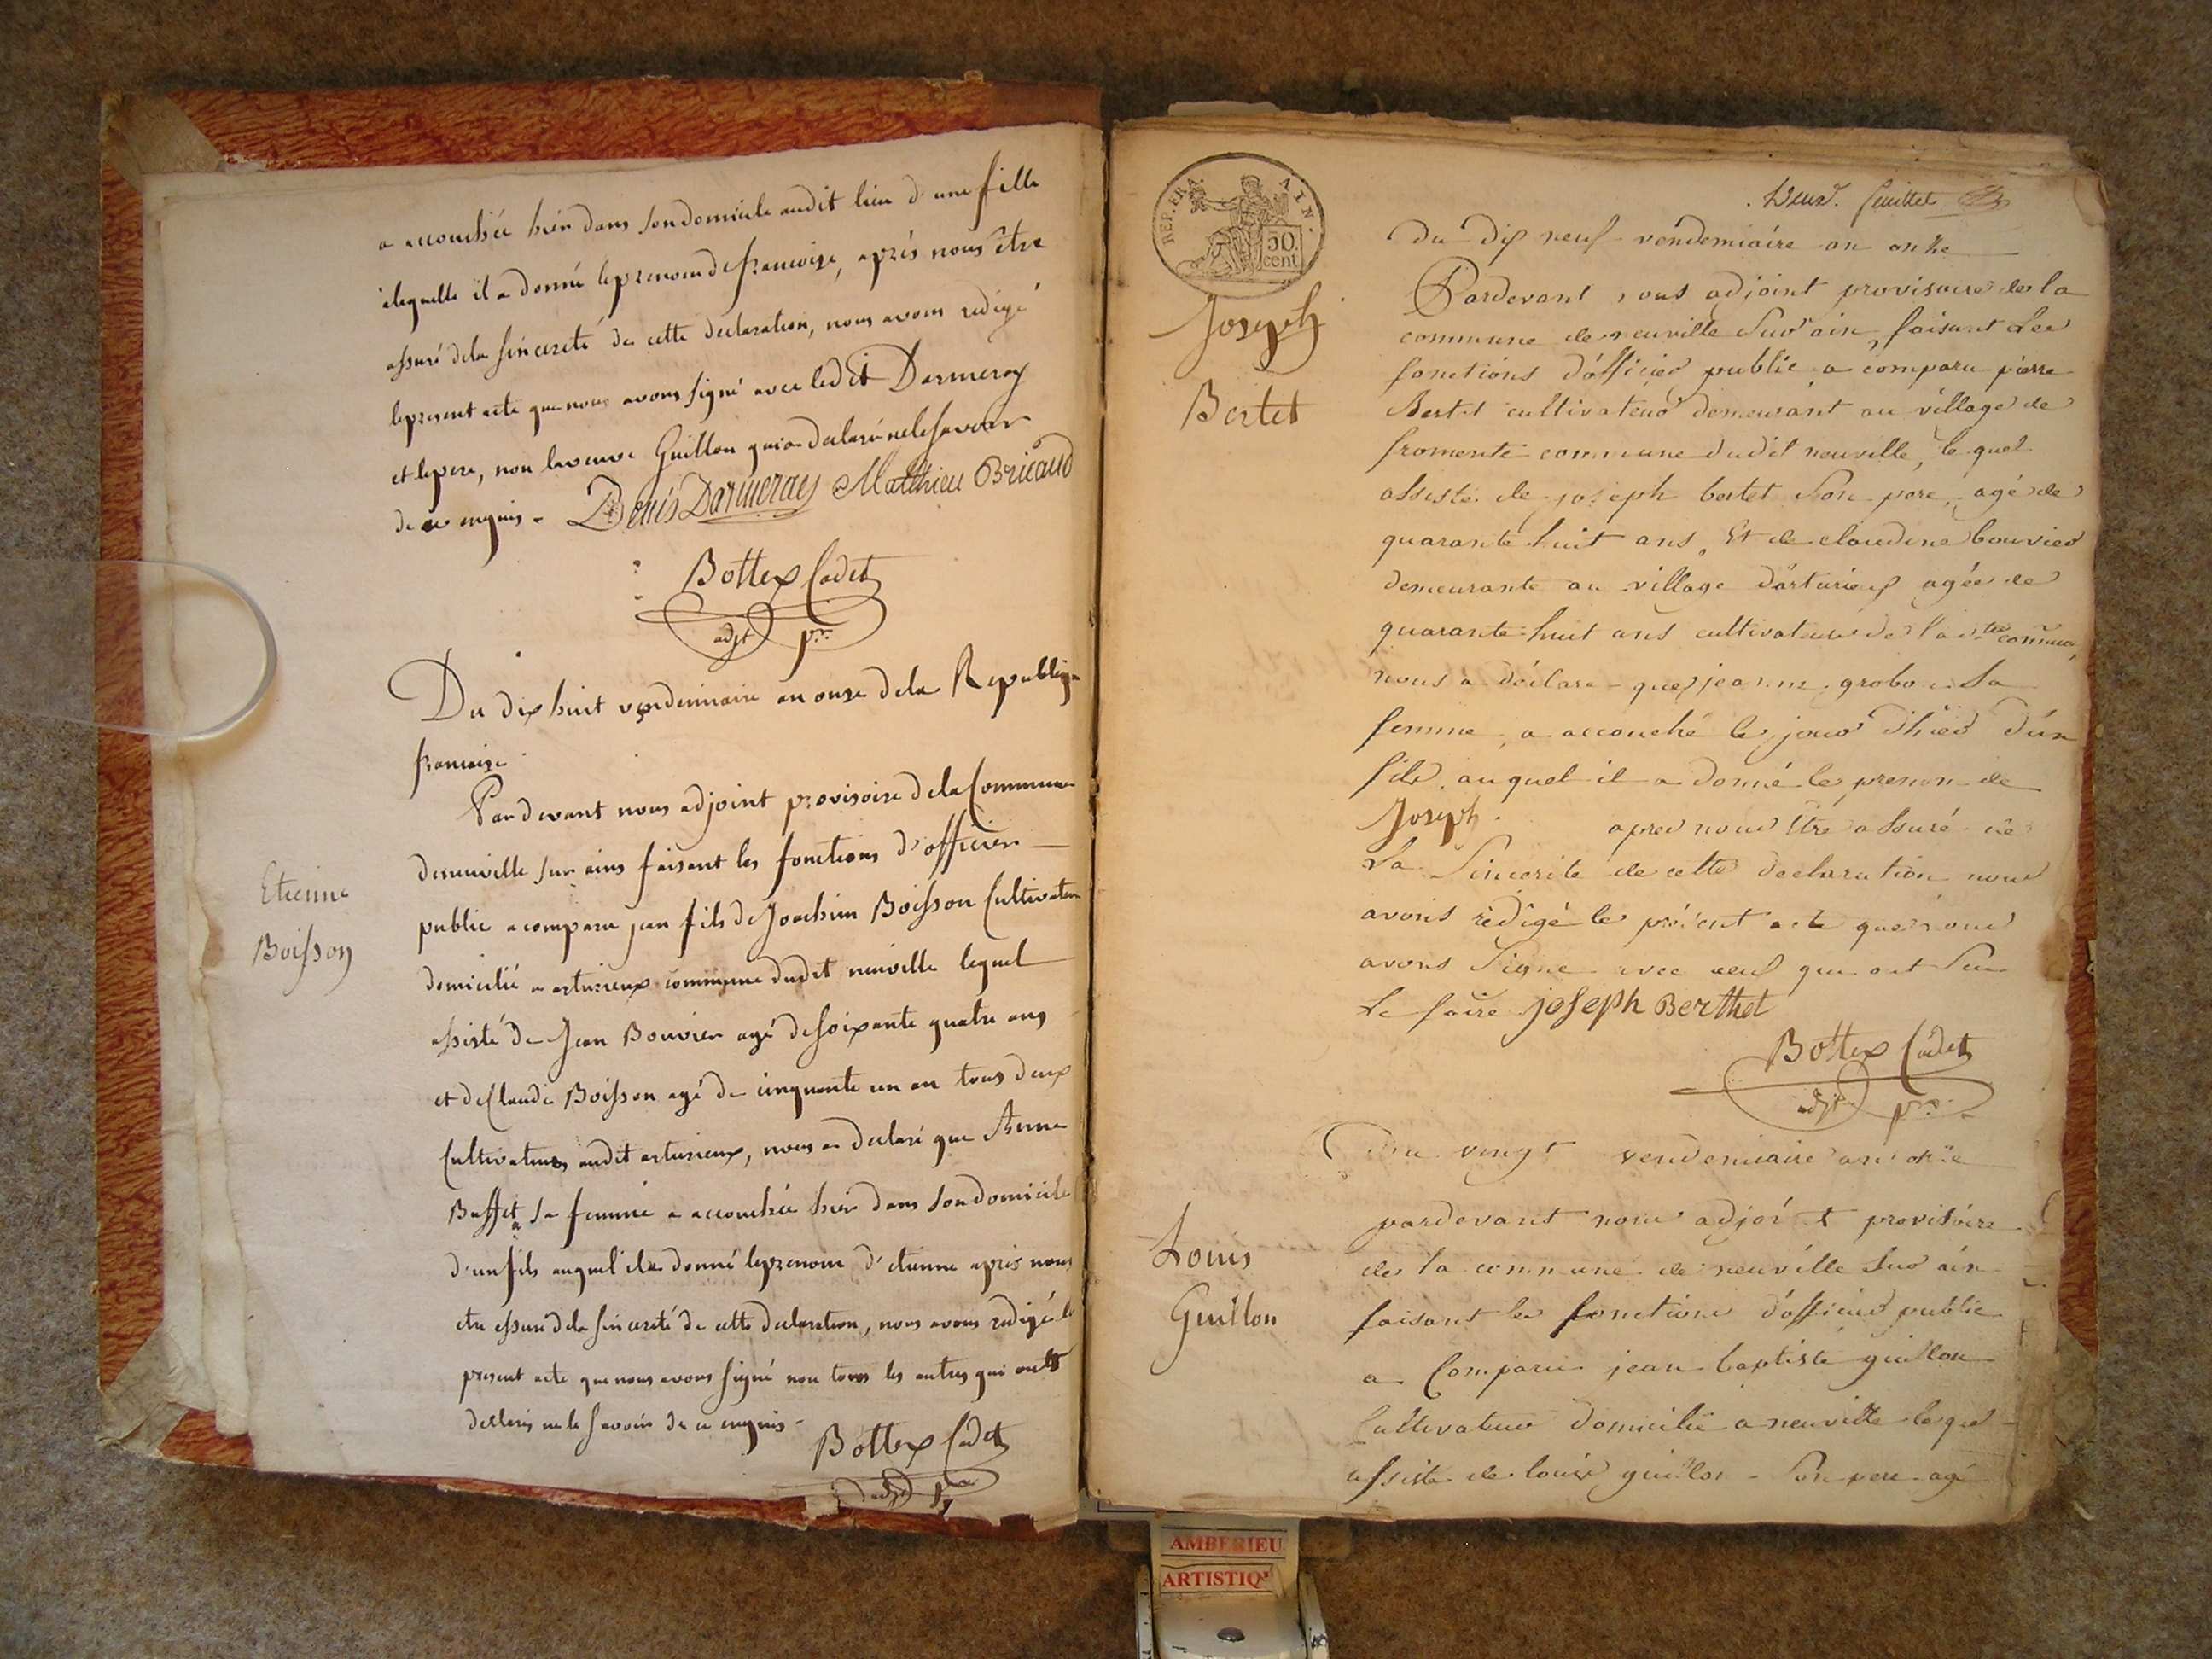 a accouchée hier dans son domicile audit lieu d'une fille
a laquelle il a donné le prenom de francoise, après nous être
assuré de la sincerité de cette declaration, nous avons redigé
le present acte que nous avons signé avec ledit Darmeray
et le pere, non la veuve Guillon qui a declaré ne le savoir
de ce enquis. Denis Darmeray Matthieu Bricaud
Bottex Cadet
adjt pre.
Du dix huit vendemiaire an onze de la Republique
francaise
Pardevant nous adjoint provisoire de la Commune
de neuville sur ains faisant les fonctions d'officier
public a comparu jean fils de Joachim Boisson Cultivateur
Etienne
Boisson
domicilié a arturieux commune dudit neuville lequel
assisté de Jean Bouvier agé de soixante quatre ans
et de Claude Boisson agé de cinquante un an tous deux
Cultivateurs audit arturieux, nous a declaré que Anne
Buffet sa femme a accouchée hier dans son domicile
d'un fils auquel il a donné le prenom d'etienne après nous
etre assuré de la sincerité de cette declaration, nous avons redigé le
present acte que nous avons signé non tous les autres qui ont
declarés ne le savoir de ce enquis.
Bottex Cadet
adjt pre
REP. FRA. AIN.
50 cent
Deux. feuillet
Du dix neuf vendemiaire an onze
Joseph
Bertet
Pardevant nous adjoint provisoire de la
commune de neuville sur ain, faisant les
fonctions d'officier public a comparu pierre
Bertet cultivateur demeurant au village de
fromente commune dudit neuville, le quel
assisté de joseph bertet son pere, agé de
quarante huit ans, Et de claudine bouvier
demeurante au village d'arturieux agée de
quarante huit ans cultivateurs de la dte commune,
nous a déclaré que jeanne grobon sa
femme, a accouché le jour d'hier d'un
fils, auquel il a donné le prenom de
Joseph. apres nous être assuré de
La Sincerite de cette declaration nous
avons rédigé le présent acte que nous
avons Signé avec ceux qui ont Su
Le faire joseph Berthet
Bottex Cadet
adjt pre.
Du vingt vendemiaire an onze
Louis
Guillon
pardevant nous adjoint provisoire
de la commune de neuville sur ain
faisant les fonctions d'officier public
a Comparu jean baptiste guillon
Cultivateur domicilié a neuville le quel
assisté de louis guillon Son pere agé
AMBERIEU
ARTISTIQ